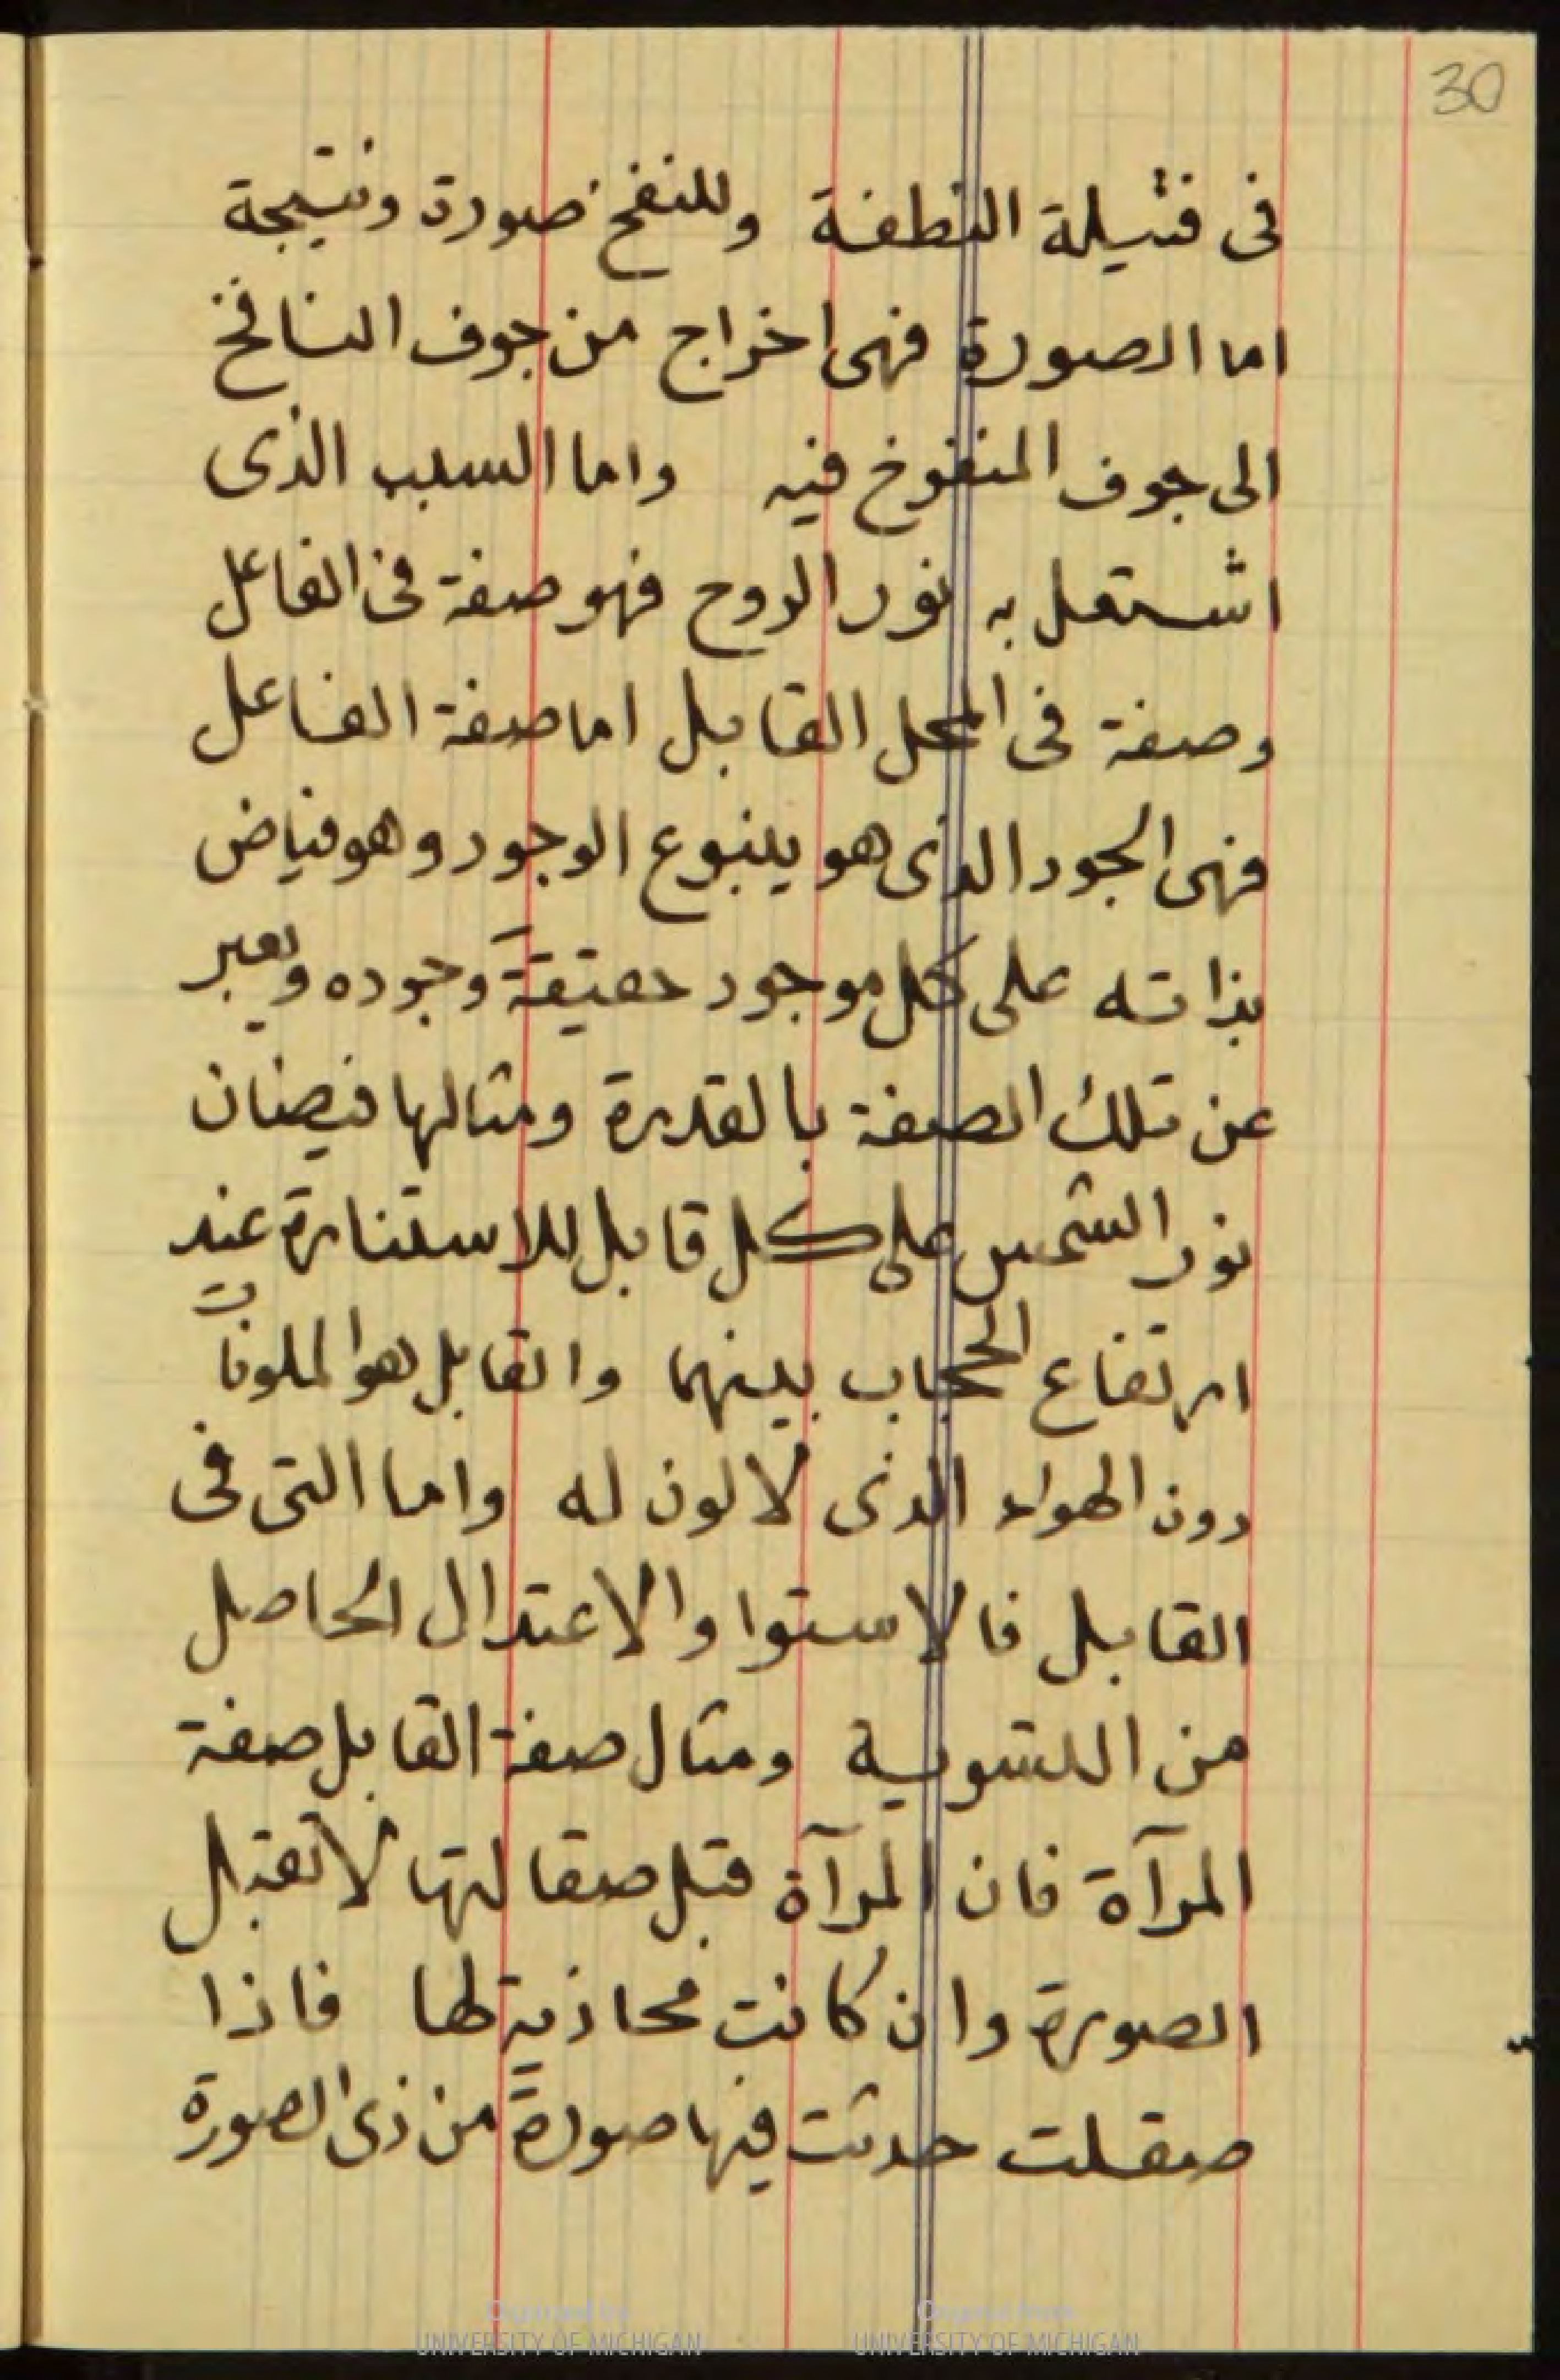 30
فى فتيلة النطفة وللنفخ صورة ونتيجة
اما الصورة فهى اخراج من جوف النافخ
الى جوف المنفوخ فيه واما السبب الذى
اشتعل به نور الروح فهو صفة فى الفاعل
وصفة فى المحل القابل اما صفة الفاعل
فهى الجود الذى هو ينبوع الوجود وهو فياض
بذاته على كل موجود حقيقة وجوده ويعبر
عن تلك الصفة بالقدرة ومثالها فيضان
نور الشمس على كل قابل للاستنارة عند
ارتفاع الحجاب بينهما والقابل هو الملونات
دون الهواء الذى لا لون له واما التى فى
القابل فالاستوا والاعتدال الحاصل
من التسوية ومثال صفة القابل صفة
المرآة فان المرآة قبل صقالتها لا تقبل
الصورة وان كانت محاذية لها فاذا
صقلت حدثت فيها صورة من ذى الصورة
Digitized by
UNIVERSITY OF MICHIGAN
Original from
UNIVERSITY OF MICHIGAN